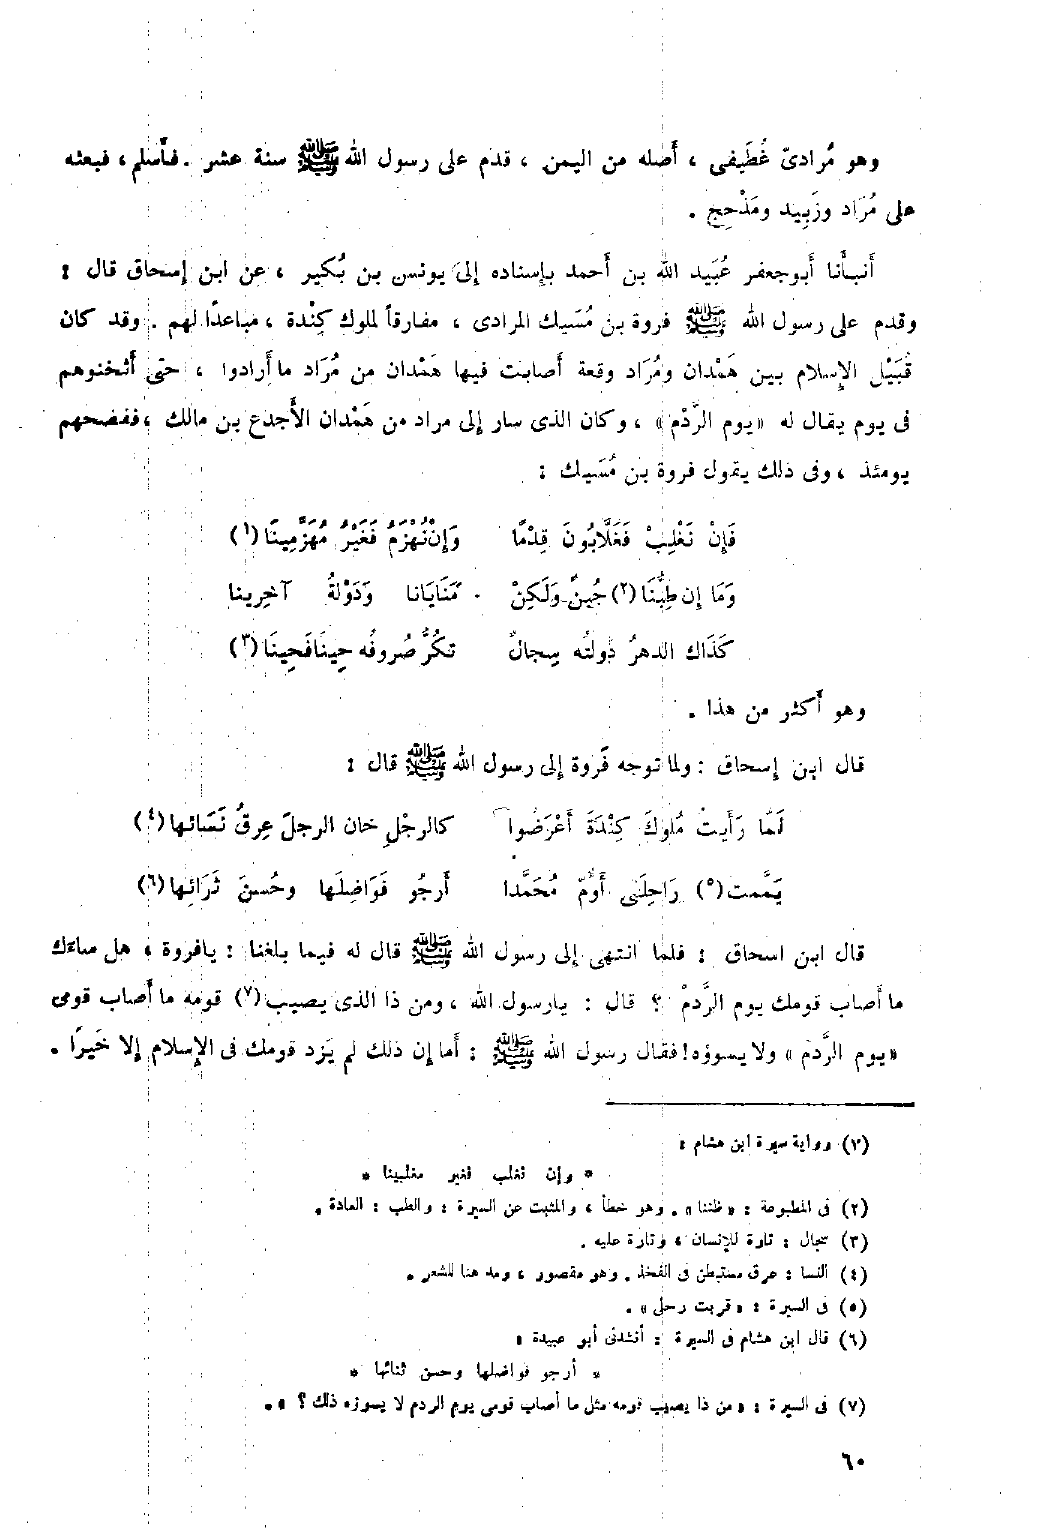 وهو مُرادىّ غُطَيفى ، أَصله من اليمن ، قدم على رسول الله ﷺ سنة عشر . فأَسلم ، فبعثه
على مُرَاد وزَبِيد ومَذْحِج .
أَنبأَنا أَبو جعفر عُبَيد الله بن أَحمد بإِسناده إِلى يونس بن بُكير ، عن ابن إِسحاق قال :
وقدم على رسول الله ﷺ فروة بن مُسَيك المرادى ، مفارقاً لملوك كِنْدة ، مباعدًا لهم . وقد كان
قُبَيْل الإِسلام بين هَمْدان ومُرَاد وقعة أَصابت فيها هَمْدان من مُرَاد ما أَرادوا ، حتى أَثخنوهم
فى يوم يقال له «يوم الرَّدْم» ، وكان الذى سار إِلى مراد من هَمْدان الأَجدع بن مالك ، ففضحهم
يومئذ ، وفى ذلك يقول فروة بن مُسَيك :
فَإِنْ نَغْلِبْ فَغَلَّابُونَ قِدْمًا وَإِنْ نُهْزَمْ فَغَيْرُ مُهَزَّمِينَا (١)
وَمَا إِن طِبُّنَا (٢) جُبنٌ وَلَكِنْ مَنَايَانا وَدَوْلةُ آخِرِينا
كَذَاك الدهرُ دُولتُه سِجالٌ تكُرُّ صُروفُه حِينًا فَحِينَا (٣)
وهو أَكثر من هذا .
قال ابن إِسحاق : ولما توجه فَروة إِلى رسول الله ﷺ قال :
لَمَّا رَأَيتُ مُلوكَ كِنْدَةَ أَعْرَضُوا كالرجْلِ خان الرجلَ عِرقُ نَسَائها (٤)
يَمَّمت (٥) رَاحِلَتى أَؤُمّ مُحَمَّدا أَرجُو فَوَاضِلَها وحُسنَ ثَرَائِها (٦)
قال ابن اسحاق : فلما انتهى إِلى رسول الله ﷺ قال له فيما بلغنا : يا فروة ، هل ساءَك
ما أَصاب قومك يوم الرَّدمْ ؟ قال : يا رسول الله ، ومن ذا الذى يصيب (٧) قومه ما أَصاب قومى
«يوم الرَّدم» ولا يسوؤه ! فقال رسول الله ﷺ : أَما إِن ذلك لم يَزد قومك فى الإِسلام إِلا خَيرًا .
(١) رواية سيرة ابن هشام :
* وإن نغلب فغير مغلبينا *
(٢) فى المطبوعة : « ظننا » . وهو خطأ ، والمثبت عن السيرة : والطب : العادة .
(٣) سجال : تارة للإنسان ، وتارة عليه .
(٤) النسا : عرق مستبطن فى الفخذ . وهو مقصور ، ومد هنا للشعر .
(٥) فى السيرة : « قربت رحلى » .
(٦) قال ابن هشام فى السيرة : أنشدنى أبو عبيدة :
* أرجو فواضلها وحسن ثنائها *
(٧) فى السيرة : « من ذا يصيب قومه مثل ما أصاب قومى يوم الردم لا يسوؤه ذلك ؟ » .
٦٠